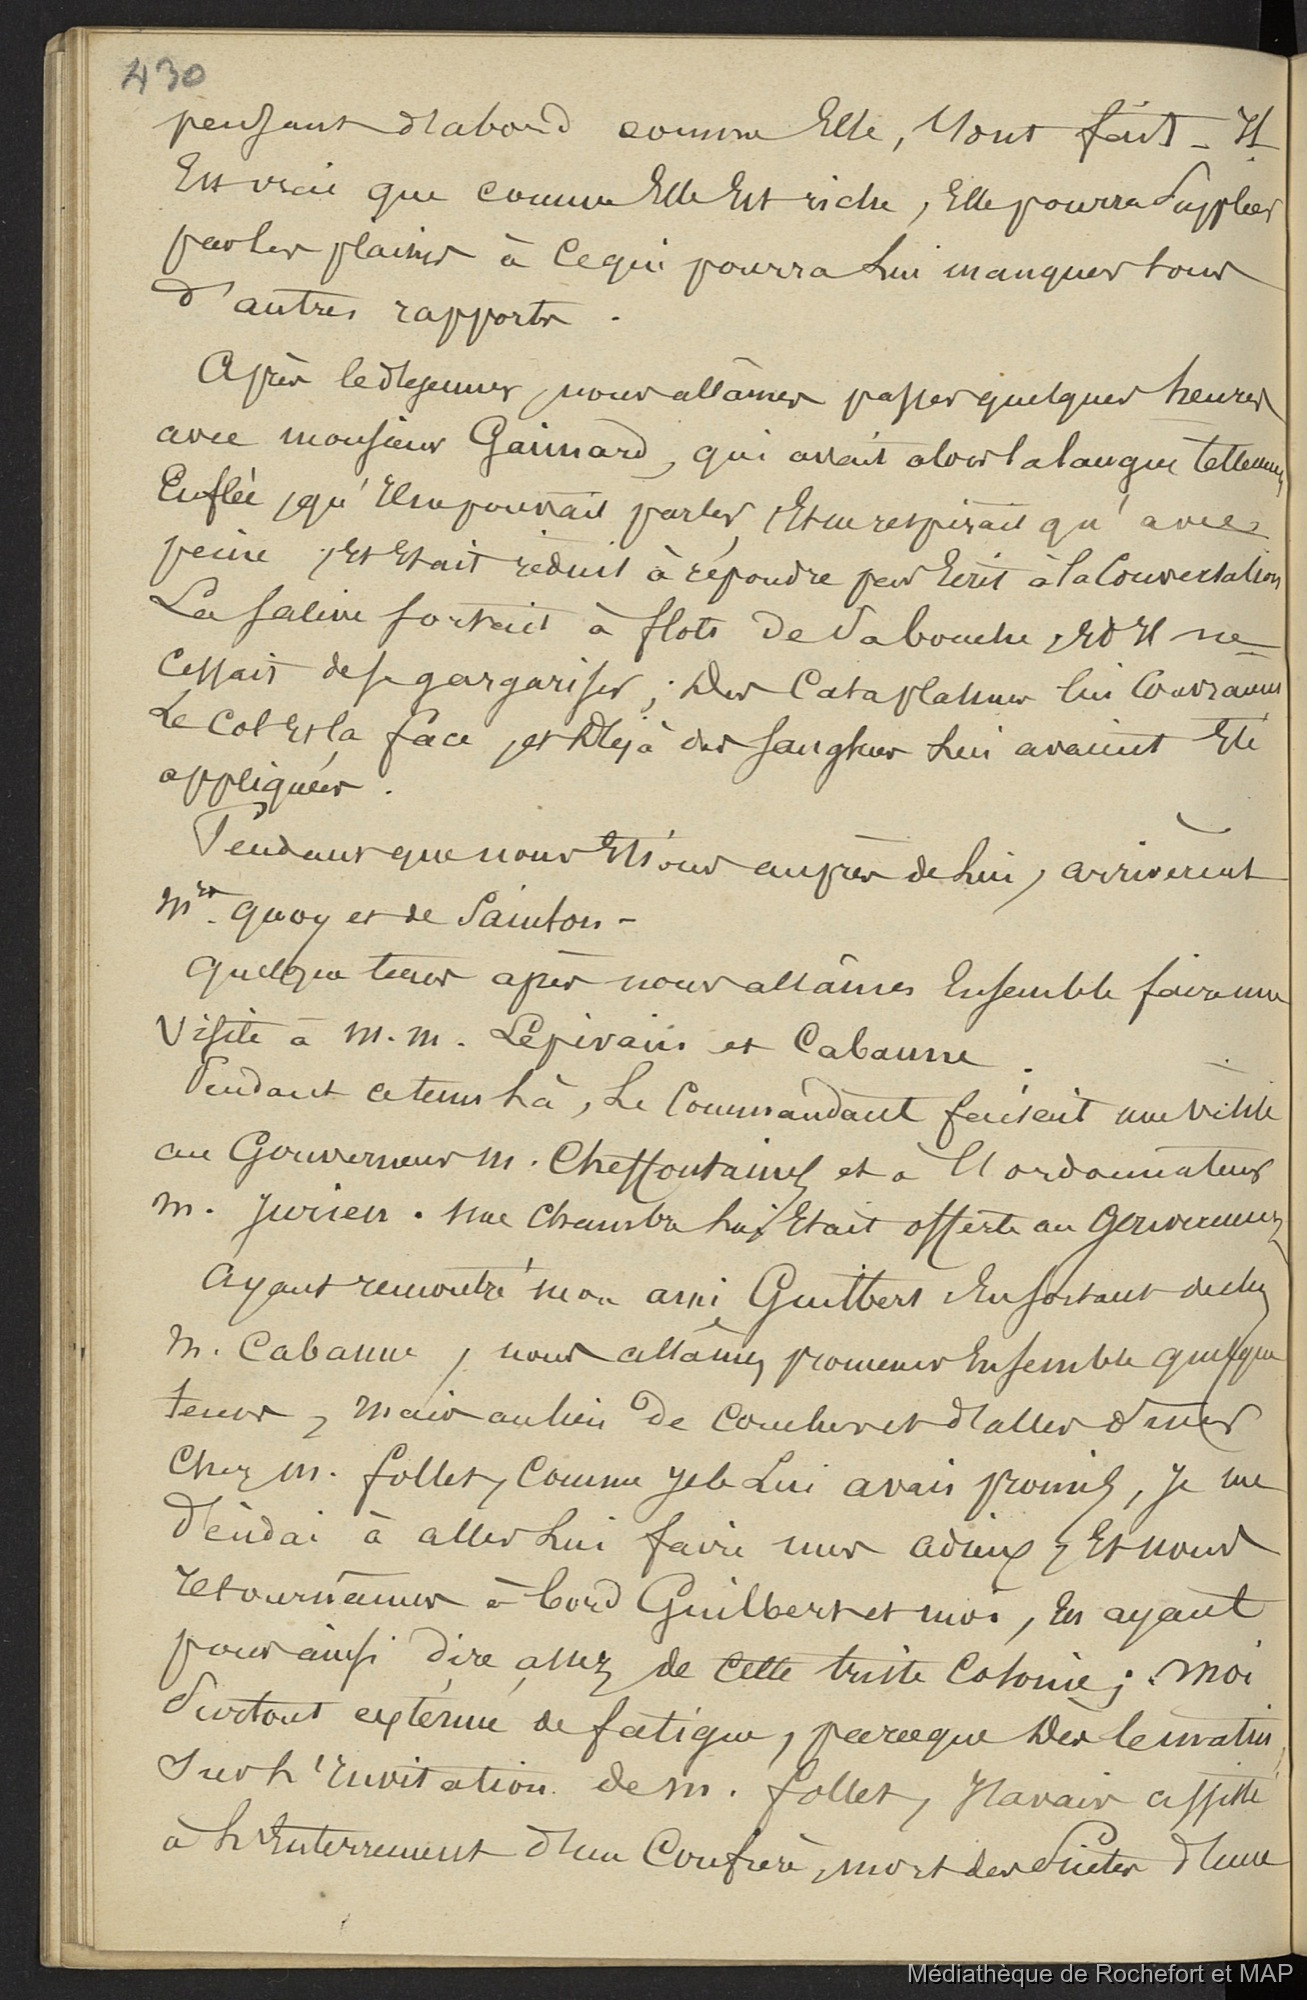 430
pensant d'abord comme Elle, l'ont fait - Il
Est vrai que comme Elle Est riche, Elle pourra Suppléer
par les plaisirs à Ce qui pourra Lui manquer sous
d'autres rapports.
Après le déjeuner, nous allâmes passer quelques heures
avec monsieur Gaimard, qui avait alors la langue tellement
Enflée, qu'Il ne pouvait parler, Et ne respirait qu'avec
peine, Et Etait réduit à répondre par Ecrit à la Conversation
La salive sortait à flots de Sa bouche, Et Il ne
Cessait de se gargariser; Des Cataplasmes lui Couvraient
Le Col Et la face, et Déjà des sangsues Lui avaient Eté
appliquées.
Pendant que nous Etions auprès de Lui, arrivèrent
Mrs. Quoy et de Sainson -
Quelque tems après nous allâmes Ensemble faire une
Visite à M.M. Lépivain et Cabanne.
Pendant ce tems Là, Le Commandant faisait une visite
au Gouverneur M. Cheffontaines et à l'ordonnateur
M. Jurien. Une Chambre Lui Etait offerte au Gouvernement
Ayant rencontré mon ami Guilbert En sortant de chez
M. Cabanne, nous allâmes promener Ensemble quelque
tems, mais au lieu de coucher et d'aller dîner
Chez M. follet, Comme je le Lui avais promis, je me
décidai à aller Lui faire mes adieux, Et nous
retournâmes à bord Guilbert et moi, En ayant
pour ainsi dire assez de cette triste Colonie; moi
Surtout exténué de fatigue, parceque Dès le matin,
Sur L'Invitation de M. follet, J'avais assisté
à L'Enterrement d'un Confrère, mort des Suites d'une
Médiathèque de Rochefort et MAP